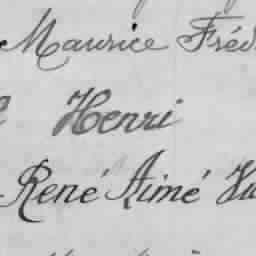 Maurice Fréd
Henri
René Aimé